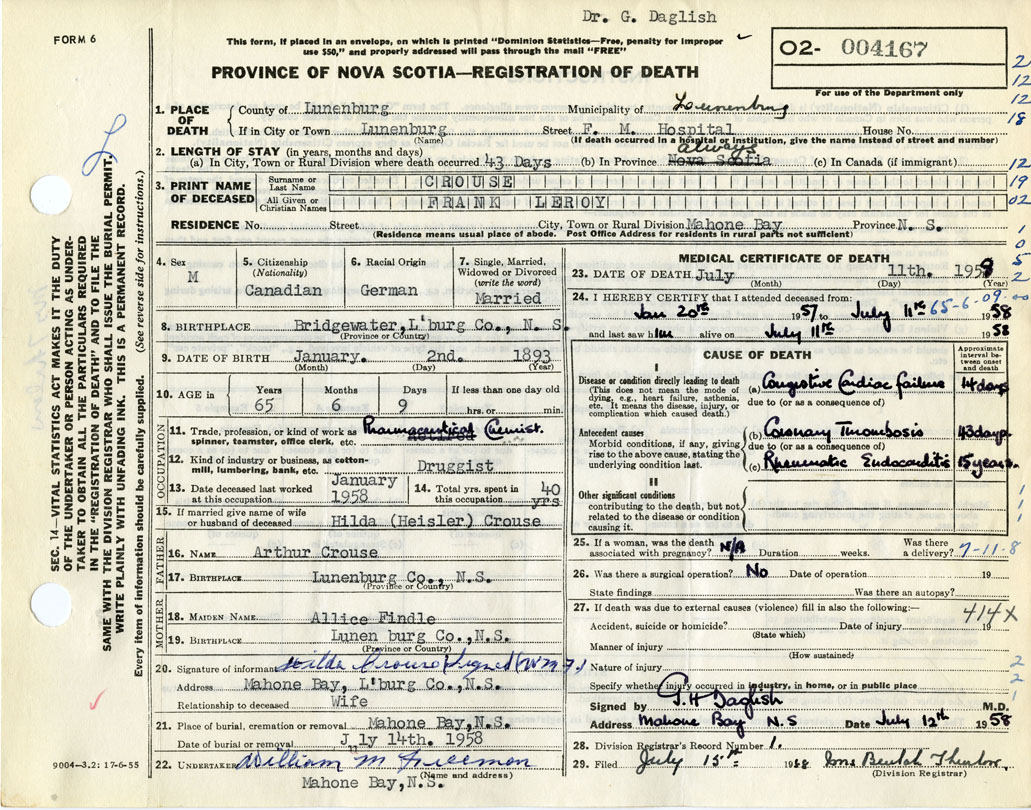 Dr. G. Daglish
FORM 6
This form, if placed in an envelope, on which is printed "Dominion Statistics—Free, penalty for improper
use $50," and properly addressed will pass through the mail "FREE"
O2- 004167
For use of the Department only
PROVINCE OF NOVA SCOTIA—REGISTRATION OF DEATH
1. PLACE OF DEATH
County of Lunenburg Municipality of Lunenburg
If in City or Town Lunenburg Street F. M. Hospital House No.
(Name) (If death occurred in a hospital or institution, give the name instead of street and number)
2. LENGTH OF STAY (in years, months and days)
(a) In City, Town or Rural Division where death occurred 43 Days (b) In Province always Nova Scotia (c) In Canada (if immigrant)
3. PRINT NAME OF DECEASED
Surname or Last Name CROUSE
All Given or Christian Names FRANK LEROY
RESIDENCE No. Street City, Town or Rural Division Mahone Bay Province N. S.
(Residence means usual place of abode. Post Office Address for residents in rural parts not sufficient)
4. Sex M
5. Citizenship (Nationality) Canadian
6. Racial Origin German
7. Single, Married, Widowed or Divorced (write the word) Married
8. BIRTHPLACE Bridgewater, L'burg Co., N. S.
(Province or Country)
9. DATE OF BIRTH January. 2nd. 1893
(Month) (Day) (Year)
10. AGE in Years 65 Months 6 Days 9 If less than one day old hrs. or min.
OCCUPATION
11. Trade, profession, or kind of work as spinner, teamster, office clerk, etc. Pharmaceutical Chemist.
12. Kind of industry or business, as cotton-mill, lumbering, bank, etc. Druggist
13. Date deceased last worked at this occupation January 1958
14. Total yrs. spent in this occupation 40 yrs
15. If married give name of wife or husband of deceased Hilda (Heisler) Crouse
FATHER
16. NAME Arthur Crouse
17. BIRTHPLACE Lunenburg Co., N.S.
(Province or Country)
MOTHER
18. MAIDEN NAME Allice Findle
19. BIRTHPLACE Lunen burg Co.,N.S.
(Province or Country)
20. Signature of informant Hilda Crouse (signed W M F)
Address Mahone Bay, L'burg Co.,N.S.
Relationship to deceased Wife
21. Place of burial, cremation or removal Mahone Bay,N.S.
Date of burial or removal July 14th. 1958
22. UNDERTAKER William M Freeman
(Name and address)
Mahone Bay,N.S.
9004-3.2: 17-6-55
SEC. 14—VITAL STATISTICS ACT MAKES IT THE DUTY
OF THE UNDERTAKER OR PERSON ACTING AS UNDER-
TAKER TO OBTAIN ALL THE PARTICULARS REQUIRED
IN THE "REGISTRATION OF DEATH" AND TO FILE THE
SAME WITH THE DIVISION REGISTRAR WHO SHALL ISSUE THE BURIAL PERMIT.
WRITE PLAINLY WITH UNFADING INK. THIS IS A PERMANENT RECORD.
Every item of information should be carefully supplied. (See reverse side for instructions.)
MEDICAL CERTIFICATE OF DEATH
23. DATE OF DEATH July 11th. 1958
(Month) (Day) (Year)
24. I HEREBY CERTIFY that I attended deceased from:
Jan 20th 1957 to July 11th 1958
65-6-09-00
and last saw him alive on July 11th 1958
CAUSE OF DEATH
Approximate interval between onset and death
I
Disease or condition directly leading to death
(This does not mean the mode of dying, e.g., heart failure, asthenia, etc. It means the disease, injury, or complication which caused death.)
(a) Congestive Cardiac failure 14 days
due to (or as a consequence of)
Antecedent causes
Morbid conditions, if any, giving rise to the above cause, stating the underlying condition last.
(b) Coronary Thrombosis 43 days
due to (or as a consequence of)
(c) Rheumatic Endocarditis 15 years.
II
Other significant conditions
contributing to the death, but not related to the disease or condition causing it.
25. If a woman, was the death associated with pregnancy? N/A Duration weeks. Was there a delivery? 7-11-8
26. Was there a surgical operation? No Date of operation 19
State findings Was there an autopsy?
27. If death was due to external causes (violence) fill in also the following:—
414X
Accident, suicide or homicide? Date of injury 19
(State which)
Manner of injury
(How sustained)
Nature of injury
Specify whether injury occurred in industry, in home, or in public place
Signed by G. H Daglish M.D.
Address Mahone Bay N.S Date July 12th 1958
28. Division Registrar's Record Number 1.
29. Filed July 15th 1958 Mrs Beulah
(Division Registrar)
2
12
12
18
12
19
02
1
0
5
2
1
1
1
2
2
1